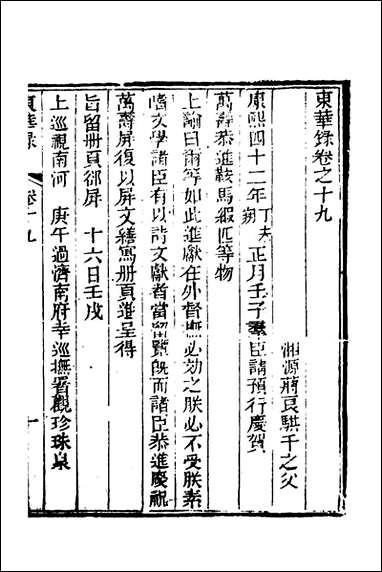 東華錄卷之十九
湘源蔣良騏千之父
康熙四十二年丁未朔正月壬子羣臣請預行慶賀
萬壽恭進鞍馬緞匹等物
上諭曰爾等如此進獻在外督撫必効之朕必不受朕素
嗜文學諸臣有以詩文獻者當留覽旣而諸臣恭進慶祝
萬壽屏復以屏文繕寫册頁進呈得
旨留册頁卻屏 十六日壬戌
上巡視南河 庚午過濟南府幸巡撫署觀珍珠泉
東華錄 卷十九 一